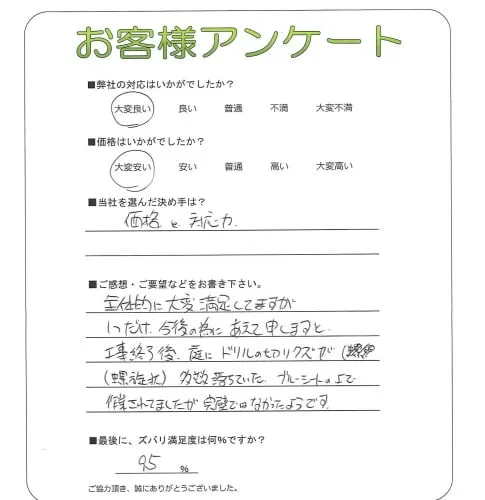 お客様アンケート
■弊社の対応はいかがでしたか？
大変良い 良い 普通 不満 大変不満
■価格はいかがでしたか？
大変安い 安い 普通 高い 大変高い
■当社を選んだ決め手は？
価格と対応力.
■ご感想・ご要望などをお書き下さい。
全体的に大変満足してますが
1つだけ、今後の為にあえて申しますと、
工事終了後、庭にドリルの切リクズが
(螺旋状) 多数落ちていた。ブルーシートの上で
作業されてましたが完璧ではなかったようです。
■最後に、ズバリ満足度は何％ですか？
95 ％
ご協力頂き、誠にありがとうございました。